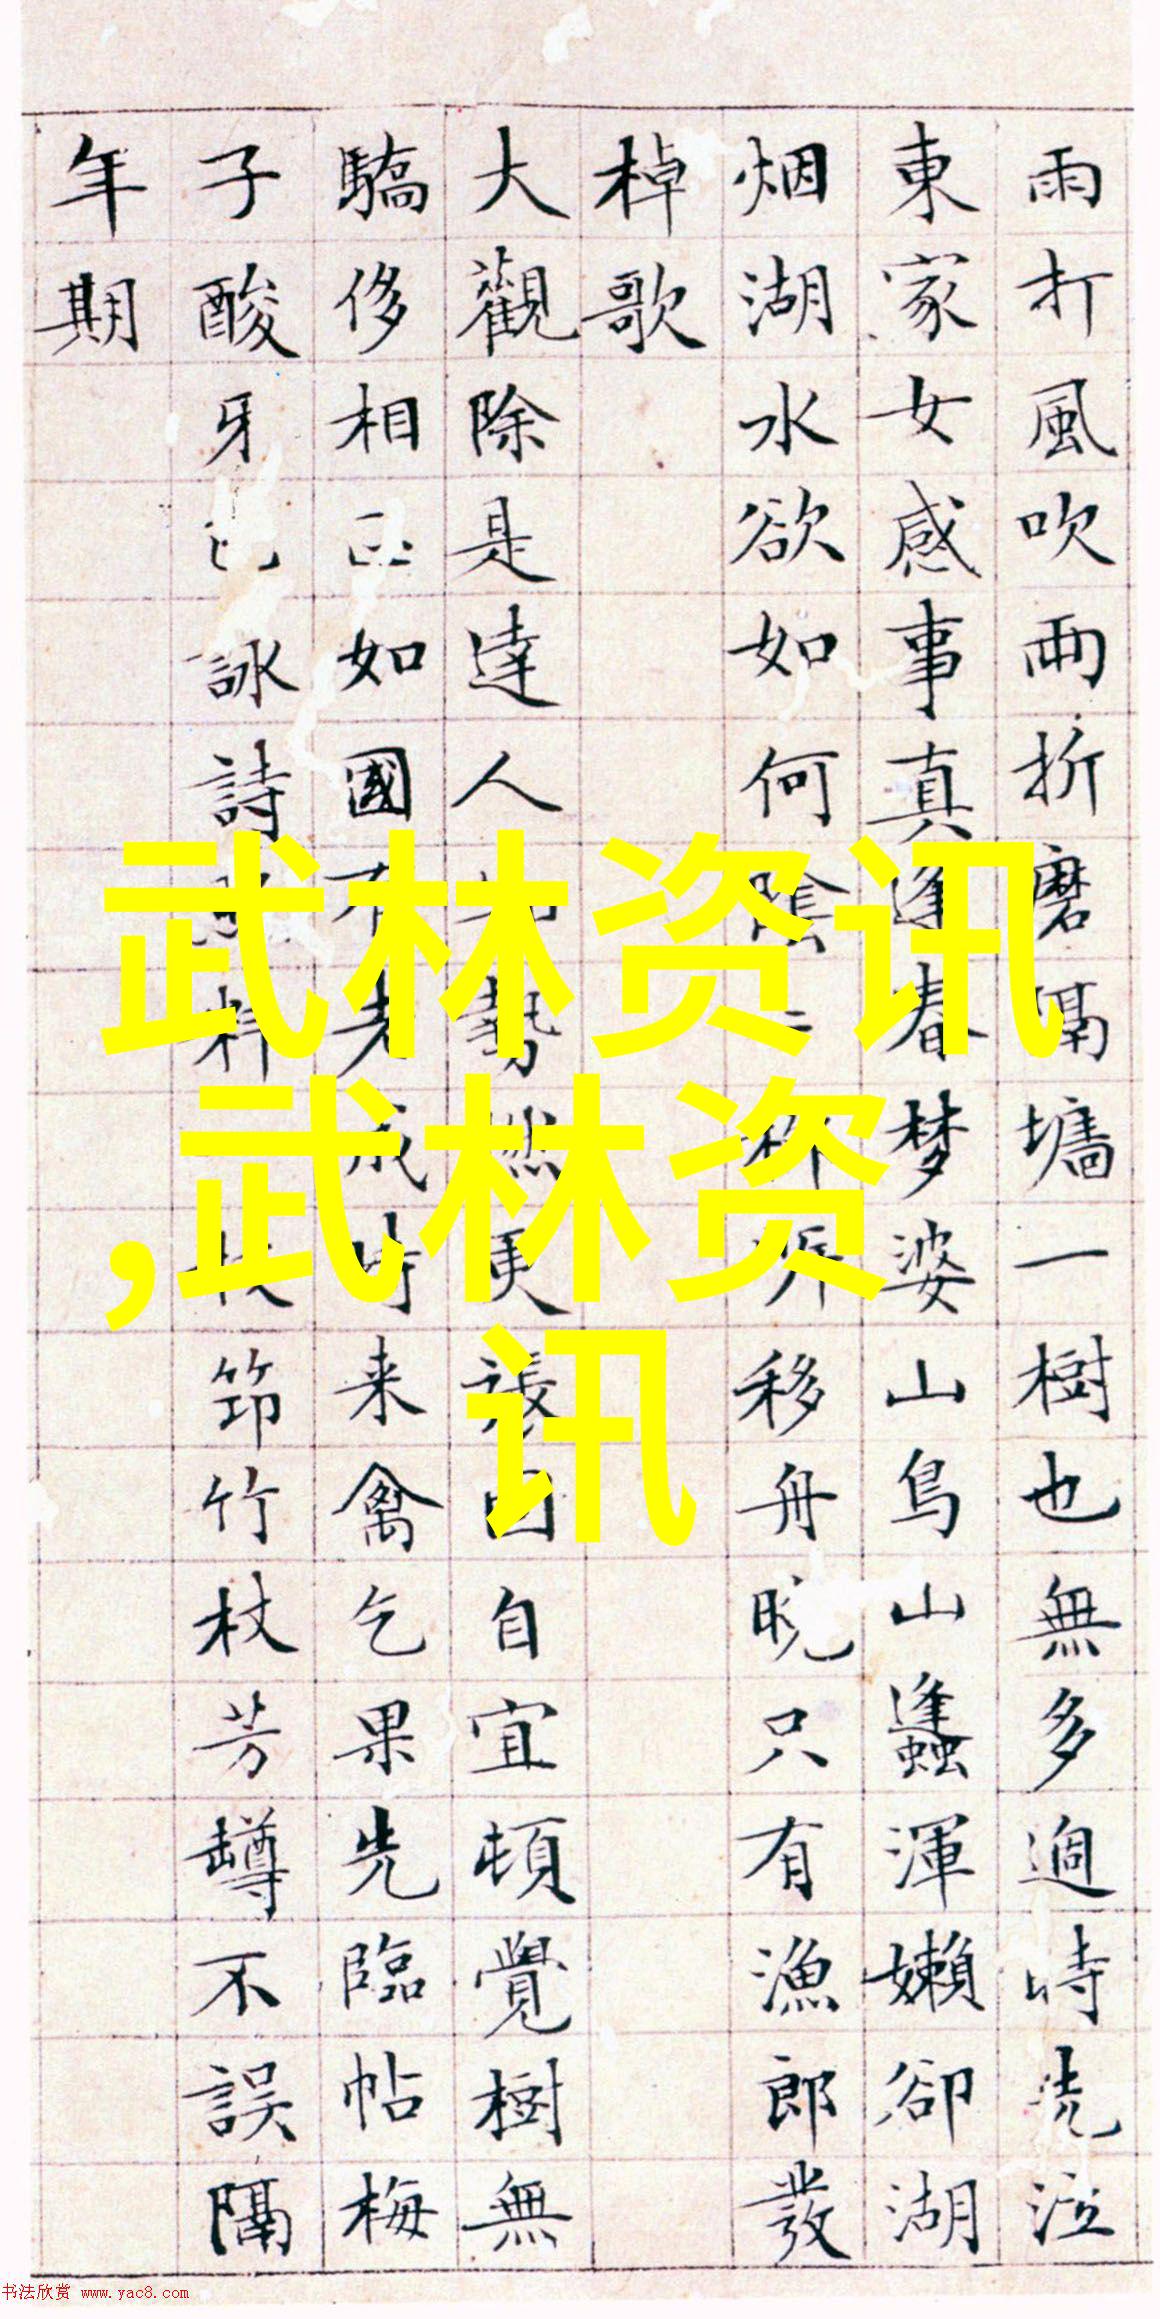 雨打風吹兩折磨隔墻一樹也無多過時洗泣
東家女感事真逢春梦婆山鳥山蠭渾嬾卻湖
烟湖水欲如何陰移舟晚只有漁郎發
棹歌
大觀除是達人勢然更張因自宜頓覺樹無
驕侈相如國有老成時来禽乞果先臨帖梅
子酸牙詠詩料筇竹杖芳罇不誤隔
年期
武林资讯
,武林资
讯
书法欣赏 www.yac8.com